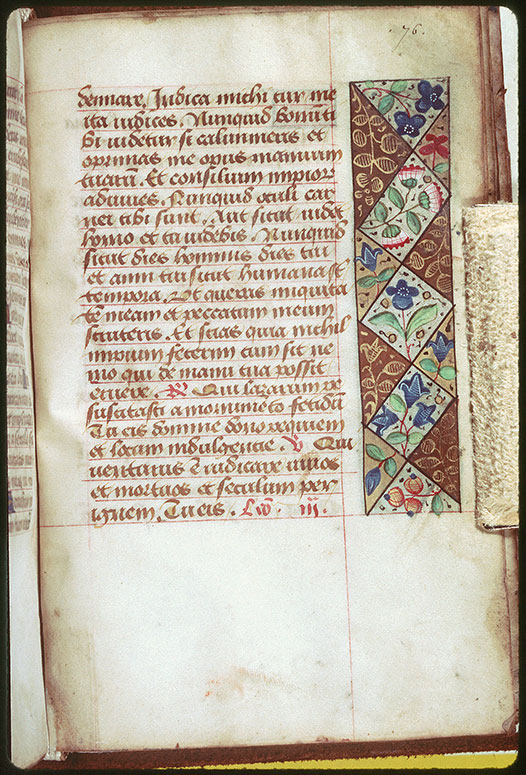 76.
dempnare. Iudica michi cur me
ita iudices. Nunquid bonum ti
bi uidetur si calumnieris et
oprimas me opus manuum
tuarum. Et consilium impiorum
adiuues. Nunquid oculi car
nei tibi sunt. Aut sicut uidet
homo et tu uidebis. Nunquid
sicut dies hominis dies tui
et anni tui sicut humana st
tempora. Ut queris iniquita
tē meam et peccatum meum
scruteris. Et scias quia nichil
impium fecerim cum sit ne
mo qui de manu tua possit
eruere. R Qui lazarum re
suscitasti a monumēto fetidū
Tu eis domine dona requiem
et locum indulgentie. V Qui
uenturus e iudicare uiuos
et mortuos et seculum per
ignem. Tu eis. Lco. iij.